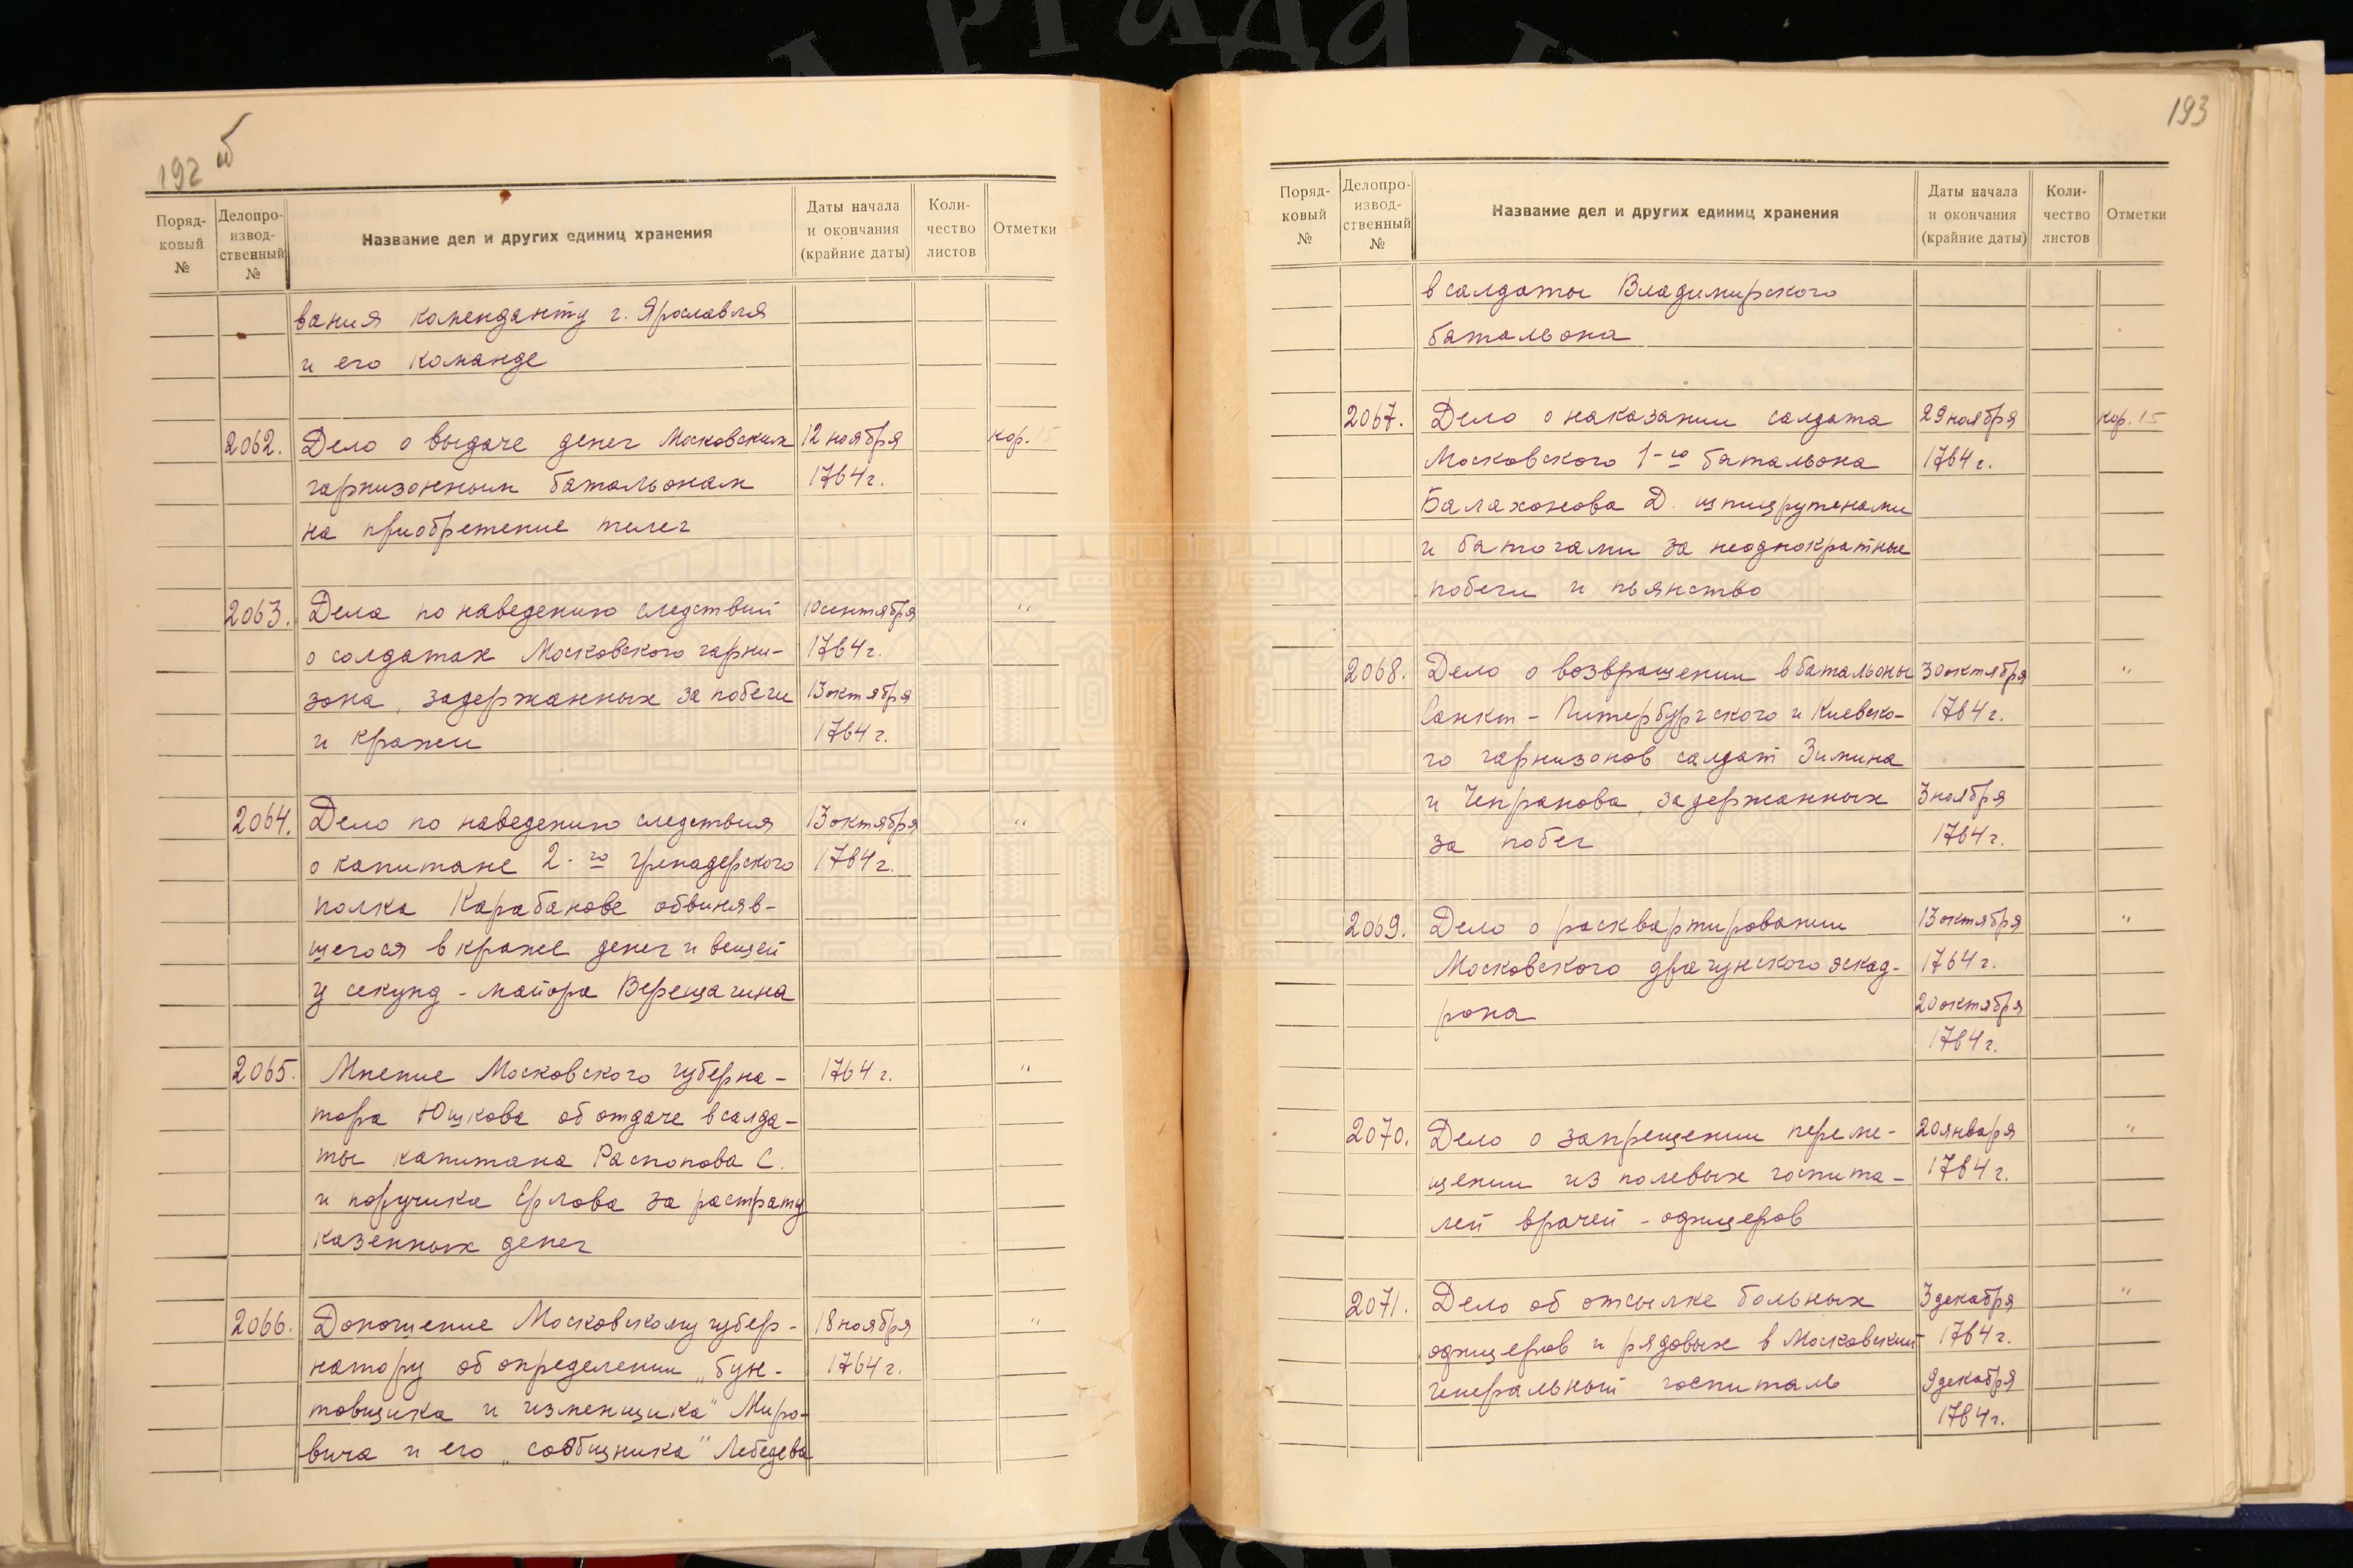 192 об
Поряд-
ковый
№
Делопро-
извод-
ственный
№
Название дел и других единиц хранения
Даты начала
и окончания
(крайние даты)
Коли-
чество
листов
Отметки
вания коменданту г. Ярославля
и его команде
2062. Дело о выдаче денег Московским 12 ноября кор. 15
гарнизонным батальонам 1764 г.
на приобретение телег
2063. Дела по наведению следствий 10 сентября "
о солдатах Московского гарни- 1764 г.
зона, задержанных за побеги 13 октября
и кражи 1764 г.
2064. Дело по наведению следствия 13 октября "
о капитане 2-го гренадерского 1764 г.
полка Карабанове обвиняв-
шегося в краже денег и вещей
у секунд-майора Верещагина
2065. Мнение Московского губерна- 1764 г. "
тора Юшкова об отдаче в салда-
ты капитана Распопова С.
и поручика Ерлова за растрату
казенных денег
2066. Доношение Московскому губер- 18 ноября "
натору об определении „бун- 1764 г.
товщика и изменщика" Миро-
вича и его „сообщника" Лебедева
193
Поряд-
ковый
№
Делопро-
извод-
ственный
№
Название дел и других единиц хранения
Даты начала
и окончания
(крайние даты)
Коли-
чество
листов
Отметки
в салдаты Владимирского
батальона
2067. Дело о наказании салдата 29 ноября кор. 15
Московского 1-го батальона 1764 г.
Балахонова Д. шпицрутенами
и батогами за неоднократные
побеги и пьянство
2068. Дело о возвращении в батальоны 30 октября "
Санкт-Питербургского и Киевско- 1764 г.
го гарнизонов салдат Зимина
и Чепранова, задержанных 3 ноября
за побег 1764 г.
2069. Дело о расквартировании 13 октября "
Московского драгунского эскад- 1764 г.
рона 20 октября
1764 г.
2070. Дело о запрещении переме- 20 января "
щении из полевых госпита- 1764 г.
лей врачей-офицеров
2071. Дело об отсылке больных 3 декабря "
офицеров и рядовых в Московский 1764 г.
генеральный госпиталь 9 декабря
1764 г.